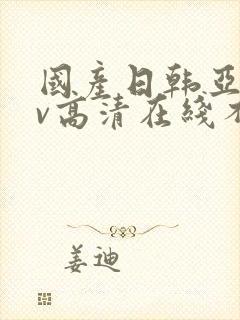 國産日韩亞
v高清在綫不
姜迪